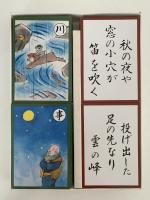 川
秋の夜や
窓の小穴が
笛を吹く
事
投げ出した
足の先なり
雲の峰